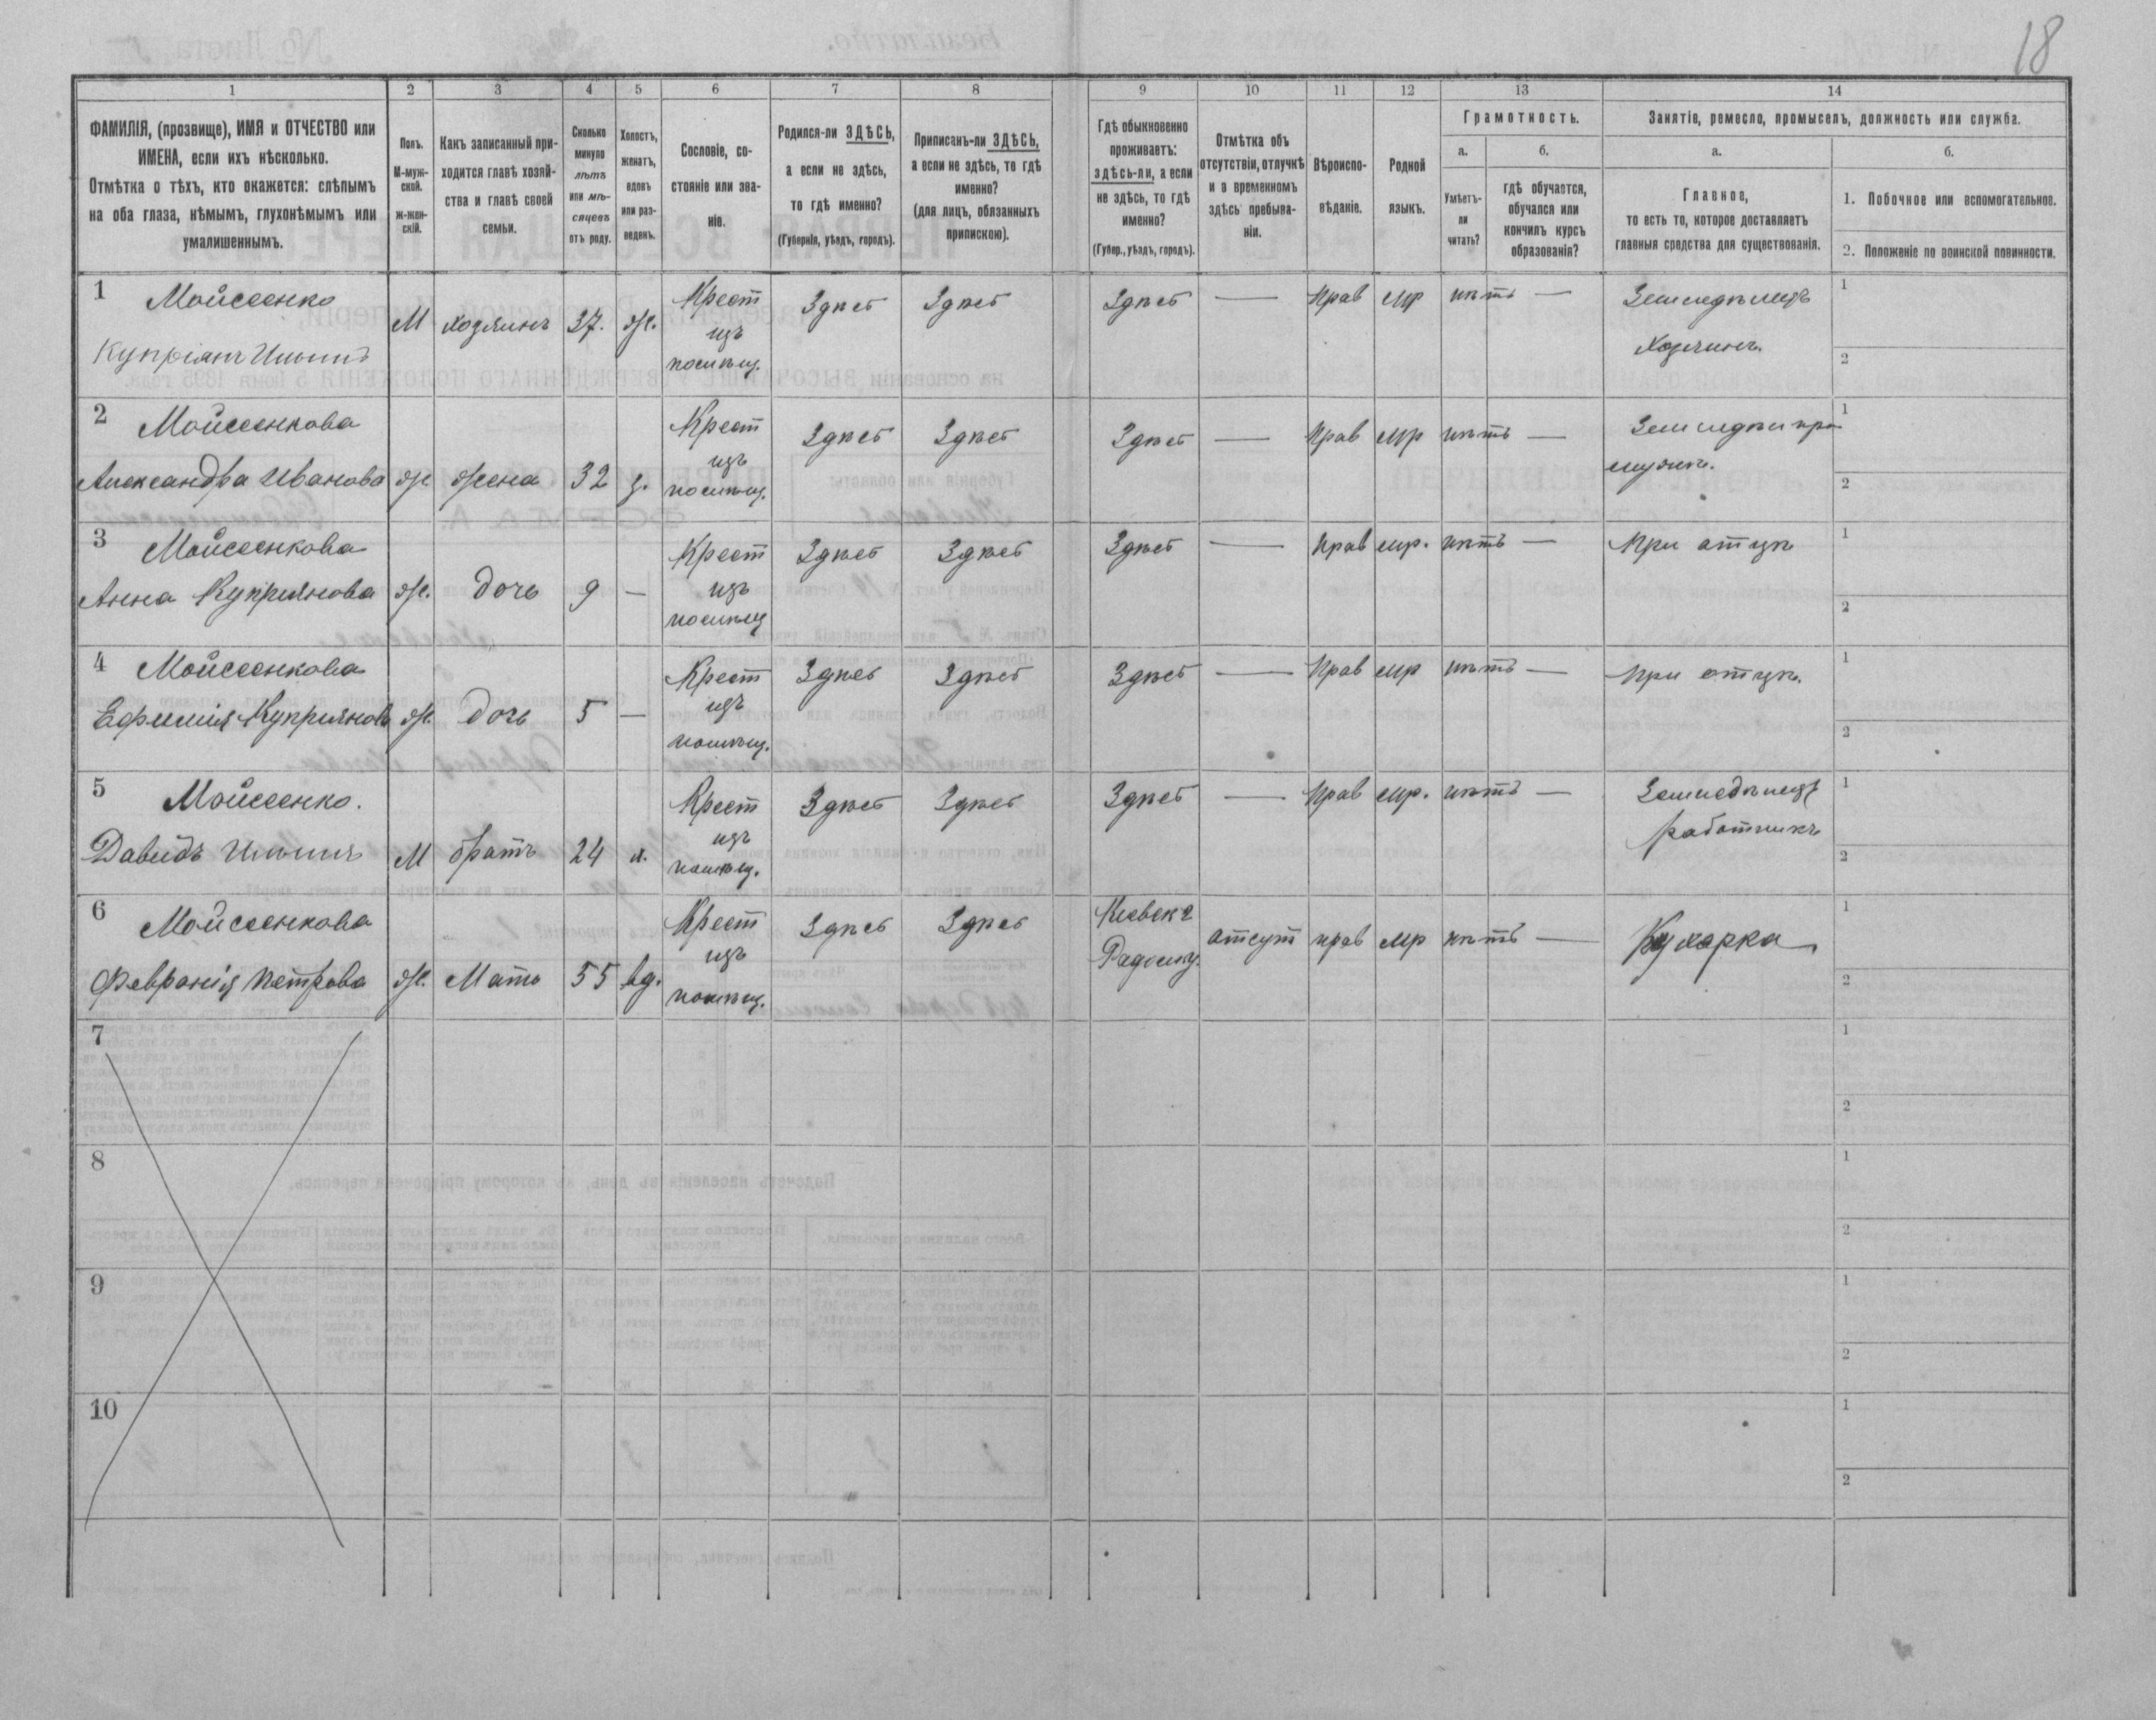 18
1 2 3 4 5 6 7 8 9 10 11 12 13 14
ФАМИЛІЯ, (прозвище), ИМЯ и ОТЧЕСТВО или ИМЕНА, если ихъ нѣсколько.
Отмѣтка о тѣхъ, кто окажется: слѣпымъ на оба глаза, нѣмымъ, глухонѣмымъ или умалишеннымъ.
Полъ. М-мужской. ж-женскій.
Какъ записанный приходится главѣ хозяйства и главѣ своей семьи.
Сколько минуло лѣтъ или мѣсяцевъ отъ роду.
Холостъ, женатъ, вдовъ или разведенъ.
Сословіе, состояніе или званіе.
Родился-ли ЗДѢСЬ, а если не здѣсь, то гдѣ именно? (Губернія, уѣздъ, городъ).
Приписанъ-ли ЗДѢСЬ, а если не здѣсь, то гдѣ именно? (для лицъ, обязанныхъ припискою).
Гдѣ обыкновенно проживаетъ: здѣсь-ли, а если не здѣсь, то гдѣ именно? (Губер., уѣздъ, городъ).
Отмѣтка объ отсутствіи, отлучкѣ и о временномъ здѣсь пребываніи.
Вѣроисповѣданіе.
Родной языкъ.
Грамотность.
а. Умѣетъ-ли читать?
б. гдѣ обучается, обучался или кончилъ курсъ образованія?
Занятіе, ремесло, промыселъ, должность или служба.
а. Главное, то есть то, которое доставляетъ главныя средства для существованія.
б.
1. Побочное или вспомогательное.
2. Положеніе по воинской повинности.
1 Мойсеенко Купріянъ Ильинъ М хозяинъ 37. ж. Крест изъ Здѣсь Здѣсь Здѣсь — Прав мр нѣтъ — Земледѣлецъ Хозяинъ. 1 2
2 Мойсеенкова Александра Иванова ж жена 32 з. Крест изъ Здѣсь Здѣсь Здѣсь — Прав мр нѣтъ — 1 2
3 Мойсеенкова Анна Куприянова ж. дочь 9 — Крест изъ Здѣсь Здѣсь Здѣсь — Прав мр. нѣтъ — При отцѣ 1 2
4 Мойсеенкова Ефимия Куприянова ж. дочь 5 — Крест изъ Здѣсь Здѣсь Здѣсь — Прав мр нѣтъ — При отцѣ. 1 2
5 Мойсеенко. Давидъ Ильинъ М братъ 24 х. Крест изъ Здѣсь Здѣсь Здѣсь — Прав мр. нѣтъ — Земледѣлецъ работникъ 1 2
6 Мойсеенкова Февронія Петрова ж. Мать 55 вд. Крест изъ Здѣсь Здѣсь отсут прав мр нѣтъ — Кухарка 1 2
7 1 2
8 1 2
9 1 2
10 1 2